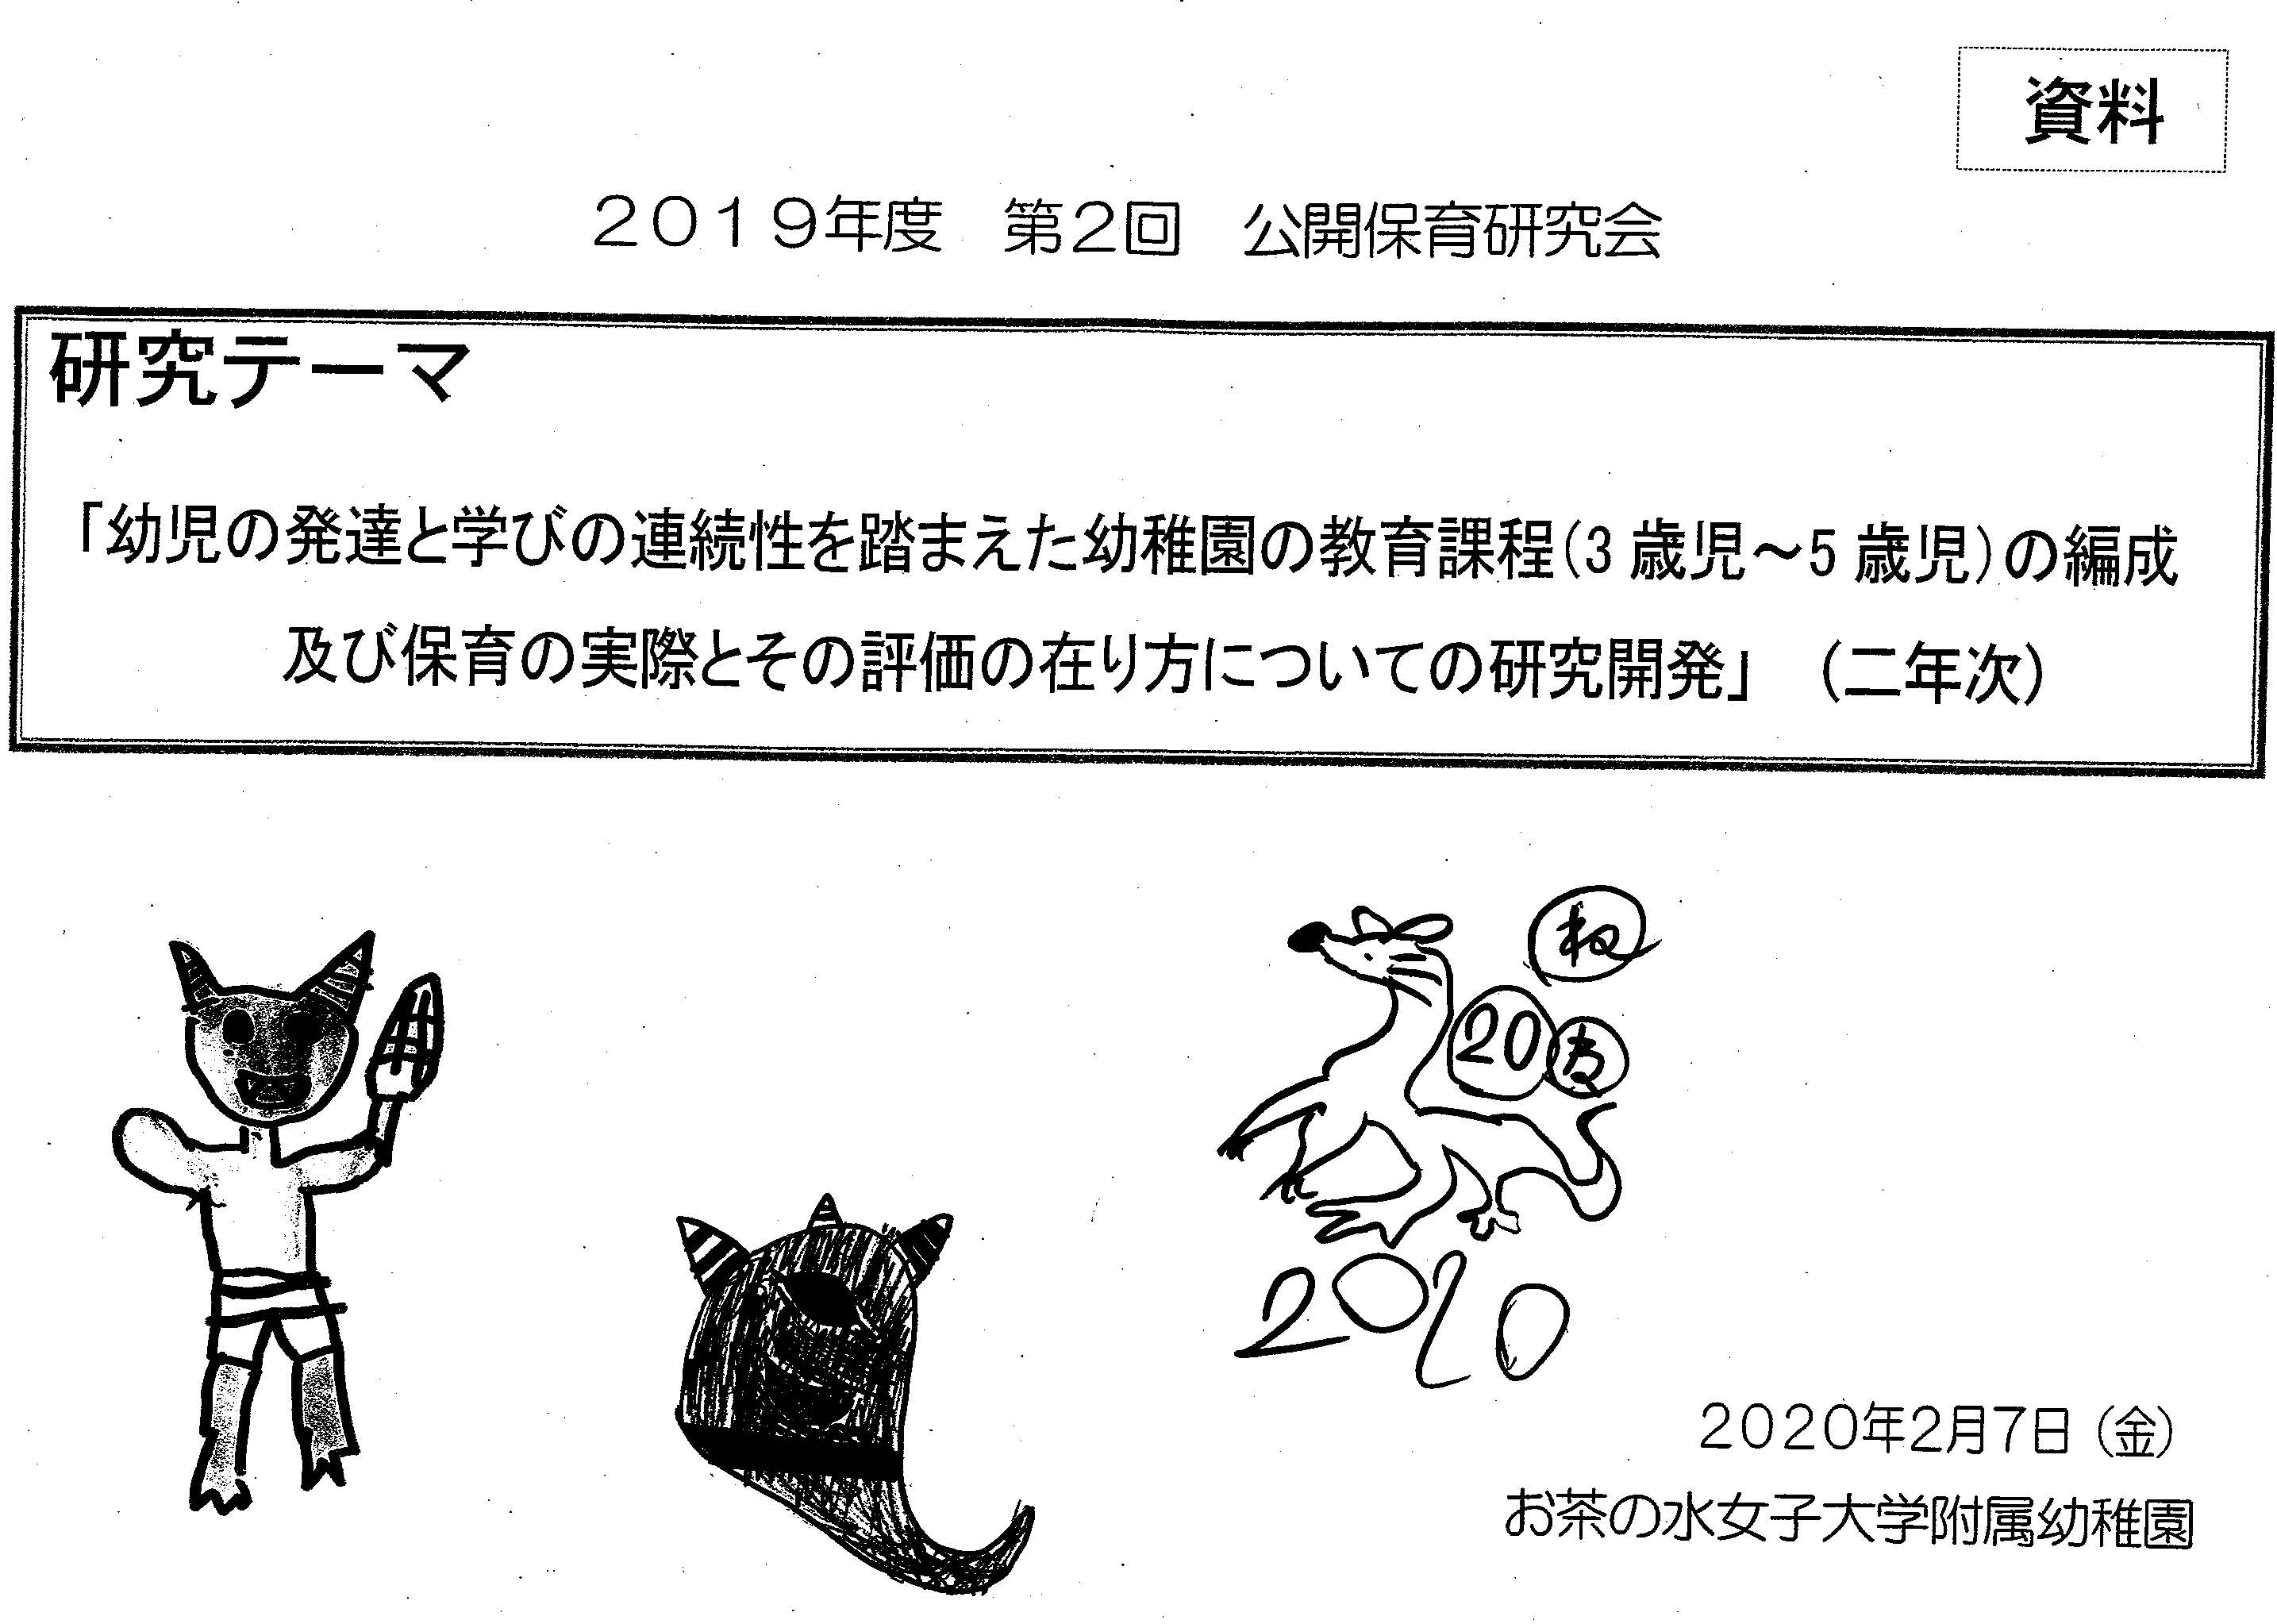 資料
2019年度　第2回　公開保育研究会
研究テーマ
「幼児の発達と学びの連続性を踏まえた幼稚園の教育課程(3歳児～5歳児)の編成
及び保育の実際とその評価の在り方についての研究開発」　(二年次)
20
2020
2020年2月7日(金)
お茶の水女子大学附属幼稚園